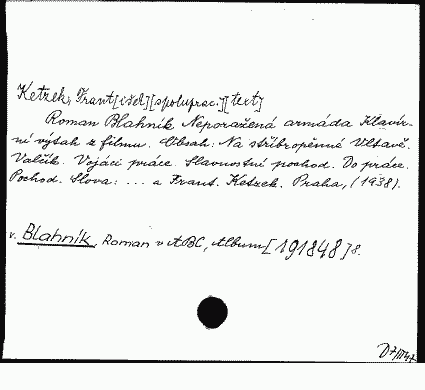 Ketzek, Frant[išek][spoluprac.][text]
Roman Blahník Neporažená armáda Klavír-
ní výtah z filmu. Obsah: Na stříbropěnné Vltavě.
Valčík. Vojáci práce. Slavnostní pochod. Do práce.
Pochod. Slova: ... a Frant. Ketzek. Praha, (1938).
v. Blahník, Roman v ABC, Album [191848] 8.